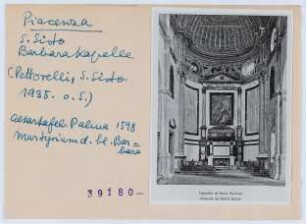 Piacenza
S. Sisto
Barbarakapelle
(Pettorelli, S. Sisto
1935. o. S.)
Altartafel: Palma 1598
Martyrium d. hl. Bar=
bara
39180-
Cappella di Santa Barbara